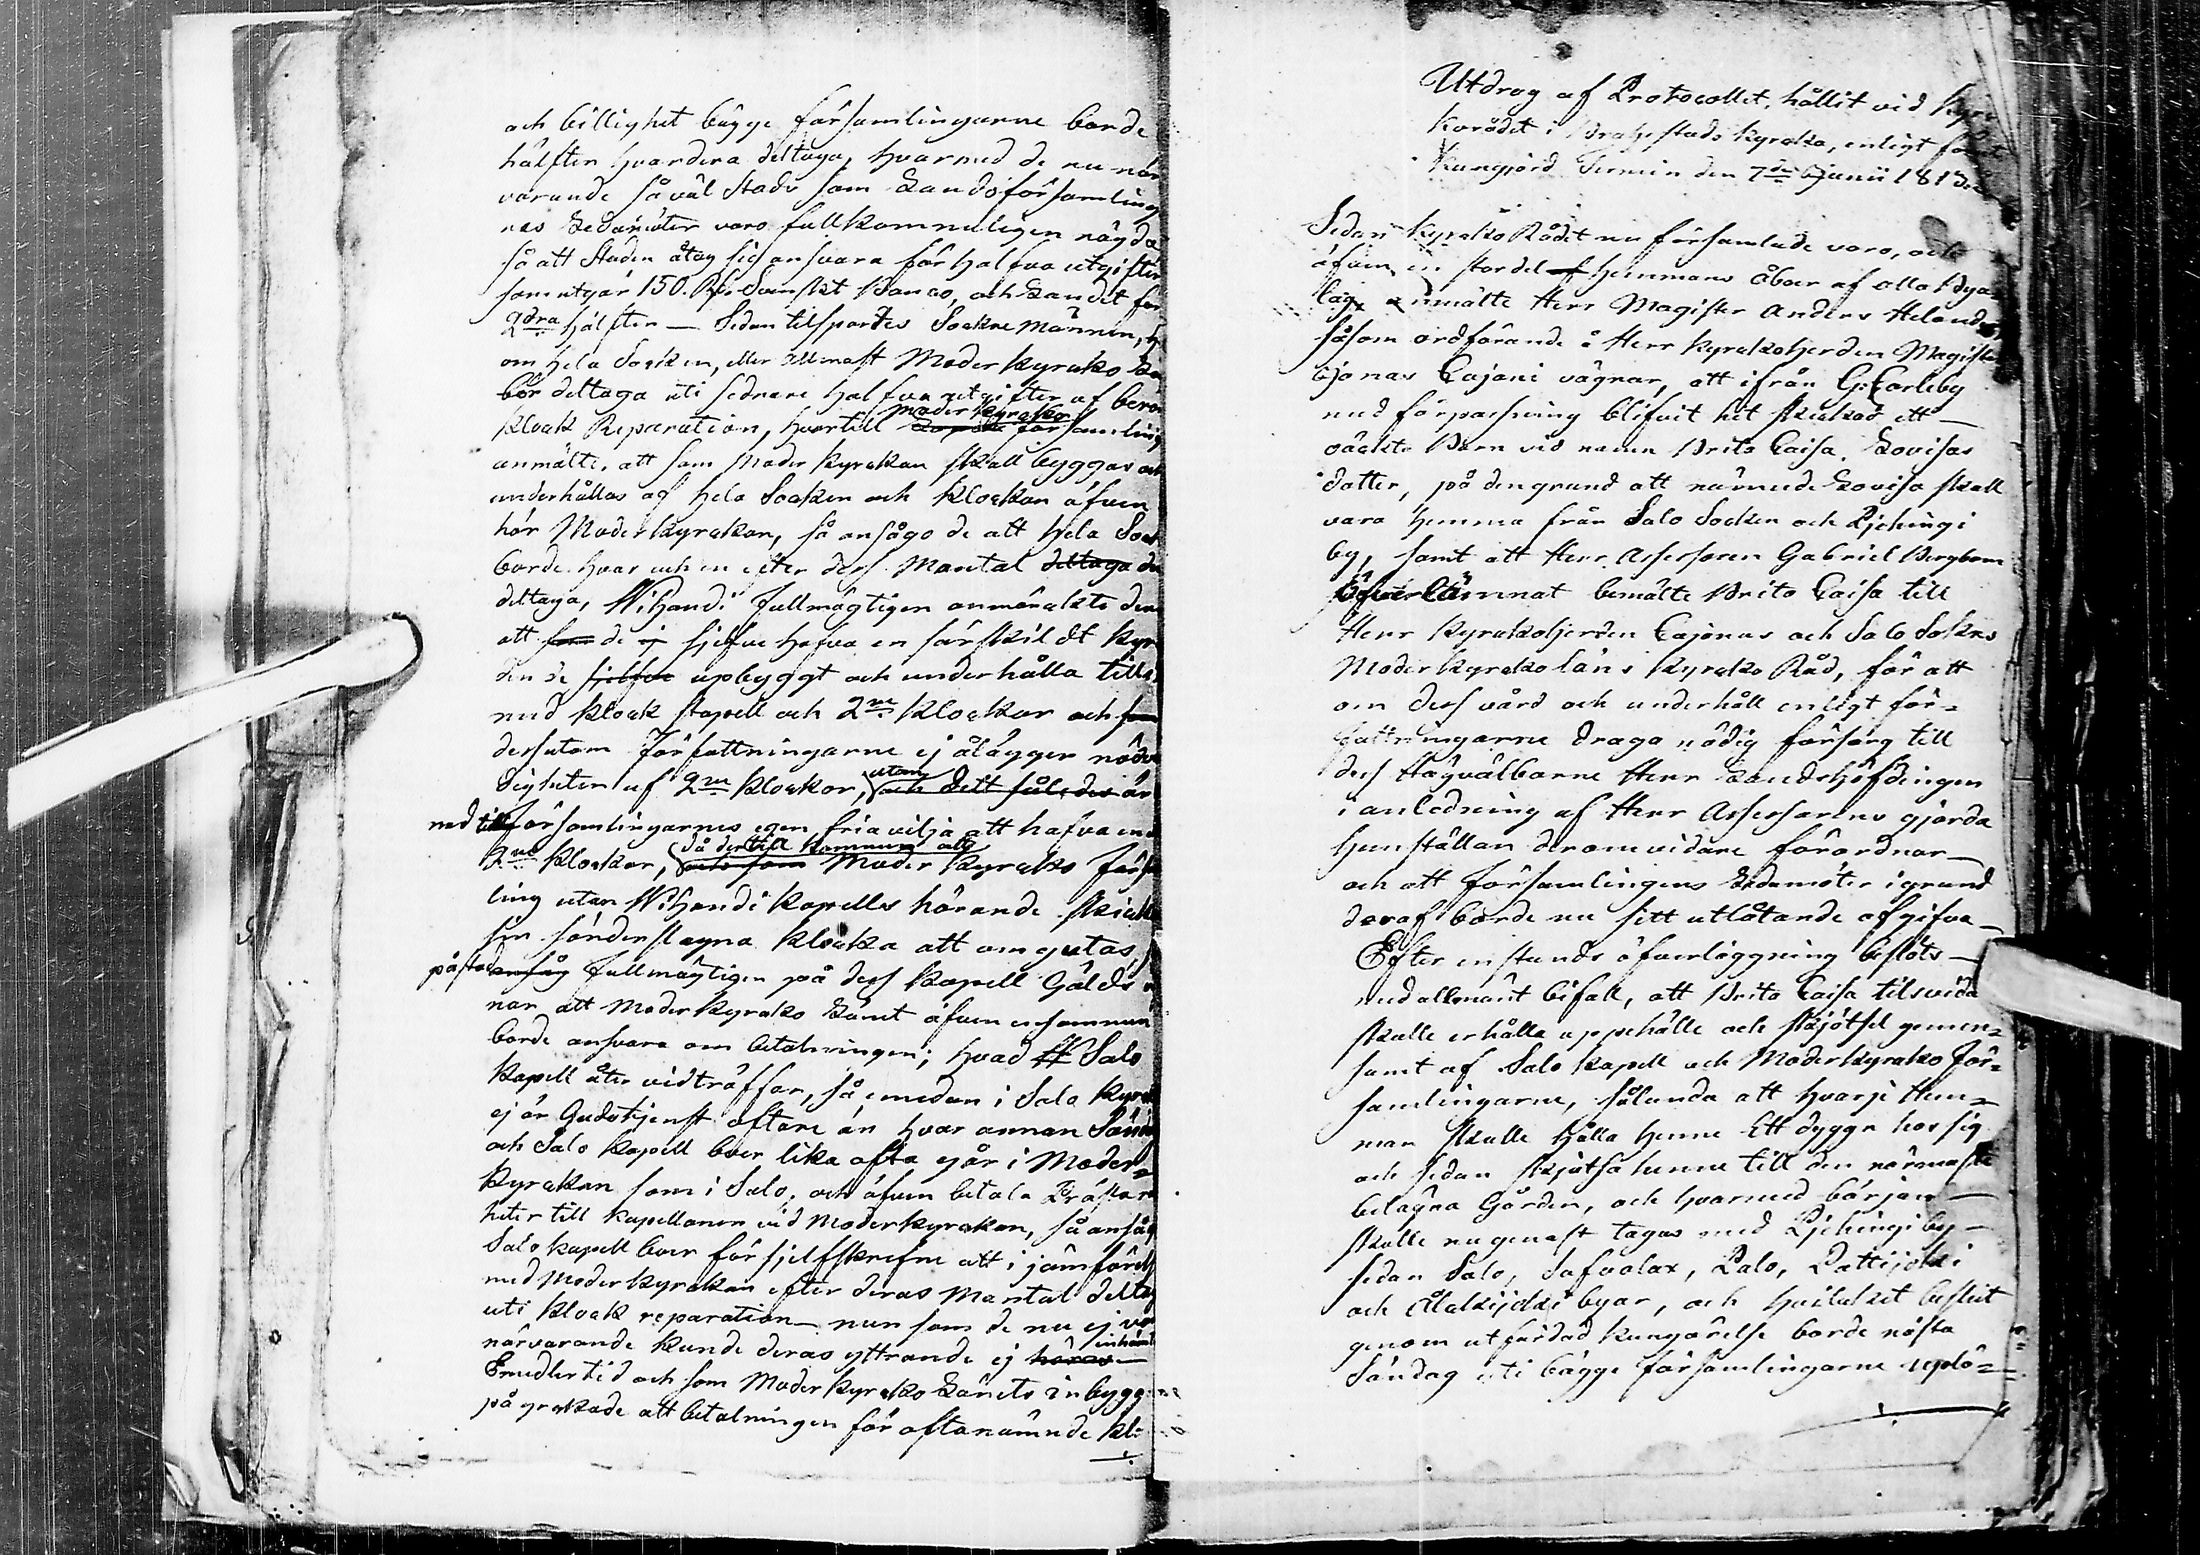 och billighet bägge församlingarne borde
hälften hvardera deltaga, hvarmed de nu när
varande så väl Stads som Landsförsamling
nes Ledamöter voro fullkommeligen nögda
så att Staden åtog sig ansvara för halfva utgiften
som utgör 150. Rd. Svenskt Banco, och Landet för
2dra hälften — Sedan tilspordes Sockne männen,
om hela Socken, eller allenast Moder kyrko
bör deltaga uti sednare halfva utgiften af berör
klock Reparation, hvartill Moderkyrko församling
anmälte, att som Moder kyrkan skall byggas och
underhållas af hela Socken och klockan äfven
hör Moderkyrkan, så ansågo de att hela Sock
borde hvar och en efter dess Mantal deltaga
deltaga, Wihandi Fullmägtigen anmärckte der
att som de ej sjelfve hafva en särskildt kyr
den de sjelfve upbyggt och underhålla tills
med klock stapell och 2ne klockor och som
dessutom författningarne ej ålägger nödv
digheten af 2ne klockor, utan och dett således är
med till Församlingarnes egen fria vilja att hafva en
2ne klockor, då dertill kommer att Moder kyrko För
ling utan Wihandi kapells hörande skick
sin sönderslagna klocka att omgutas,
påstod Fullmägtigen på dess Kapell Gälds
nar att Moderkyrko Länet äfven ensammen
borde ansvara om betalningen; hvad Salo
Kapell åter vidträffar, så emedan i Salo kyrk
ej är Gudstjenst oftare än hvar annan Sönd
och Salo Kapell boer lika ofta går i Moder=
kyrkan som i Salo, och äfven betala Prästerä
heter till Kapellanen vid Moderkyrkan, så ansåg
Salo kapell boer för sjelfskrefne att i jämförels
med Moderkyrkan efter deras Mantal deltag
uti klock reparation — men som de nu ej vor
närvarande kunde deras yttrande ej inhämt
Emedlertid och som Moder kyrko Länets inbygg
på yrckade att betalningen för oftanämnde klo

Utdrag af Protocollet, hållit vid Kyr
korådet i Brahestads kyrcka, enligt för
kungjord Termin den 7de Junii 181
Sedan kyrcko Rådet nu församlade voro, och
äfven en stor del Hemmans Åboer af alla bya
lag, anmälte Herr Magister Anders Heland
såsom ordförande å Herr kyrckoherden Magister
Jonas Cajani vägnar, att ifrån G: Carleby
med förpassning blifvit hit skickad ett —
oäckta Barn vid namn Brita Caisa Lovisas
dotter, på den grund att nämnde Lovisa skall
vara hemma från Salo Socken och Pjehingi
by, samt att Herr Assessoren Gabriel Bergbom
öfverlämnat bemälte Brita Caisa till
Herr kyrckoherden Cajanus och Salo Sokns
Moderkyrckoläns kyrcko Råd, för att
om dess vård och underhåll enligt för=
fattningarne draga nödig försorg till
dess Högvälborne Herr Landshöfdingen
i anledning af Herr Assessorens gjorda
hemställan derom vidare förordnar —
och att Församlingens Ledamöter i grund
deraf borde nu sitt utlåtande afgifva —
Efter en stunds öfverläggning beslöts —
med allmänt bifall, att Brita Caisa tilsvida
skulle erhålla uppehälle och skjötsel gemen=
samt af Salo kapell och Moderkyrcko För=
samlingarne, sålunda att hvarje Hem=
man skulle hålla henne Ett dyggn hos sig
och sedan skjutsa henne till den närmaste
belägna Gården, och hvarmed början —
skulle nu genast tagas med Pjehingi by —
sedan Salo, Safvolax, Palo, Pattijoki
och Olkijoki byar, och hvilcket beslut
genom utfärdad kungörelse borde nästa
Söndag uti bägge församlingarne uplä=